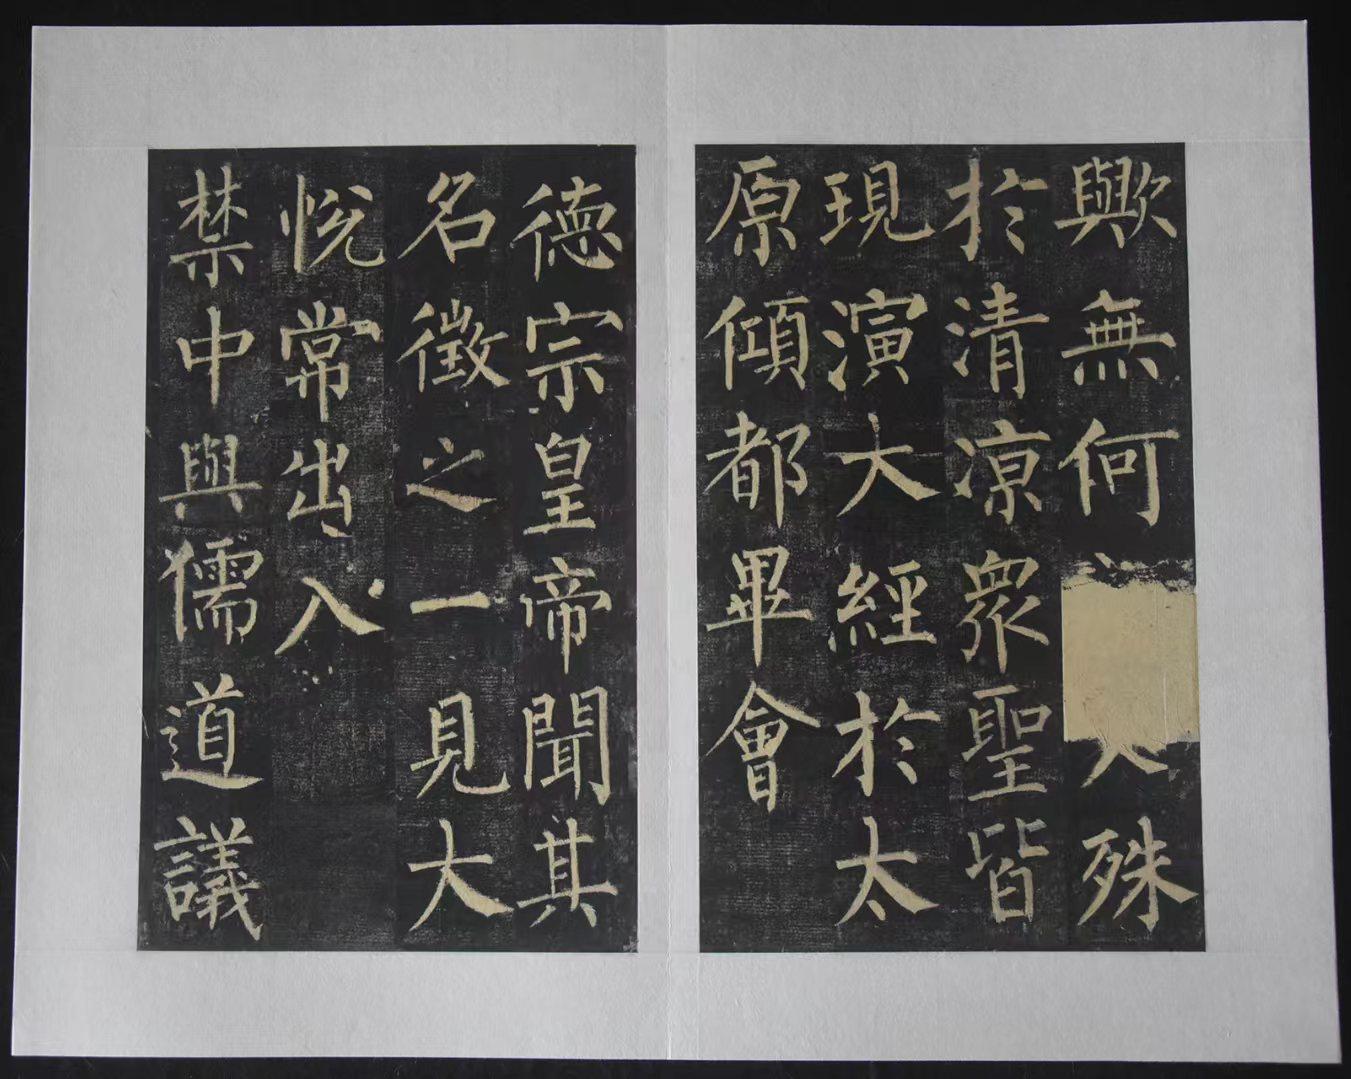 歟無何殊
於清涼眾聖皆
現演大經於太
原傾都畢會
德宗皇帝聞其
名徵之一見大
悅常出入
禁中與儒道議